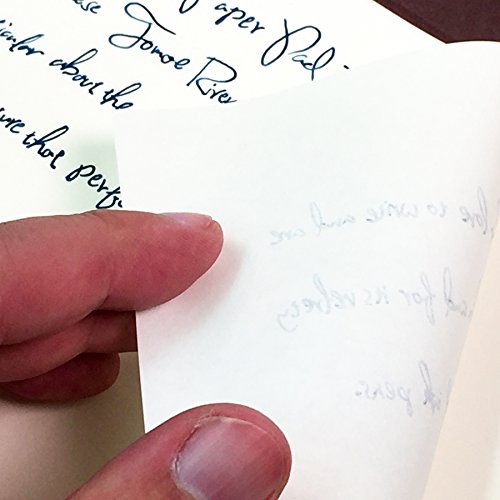 Paper Pad -
these Tomoe River
about the
sure that perf
love to write and are
and for its velvety
pens.